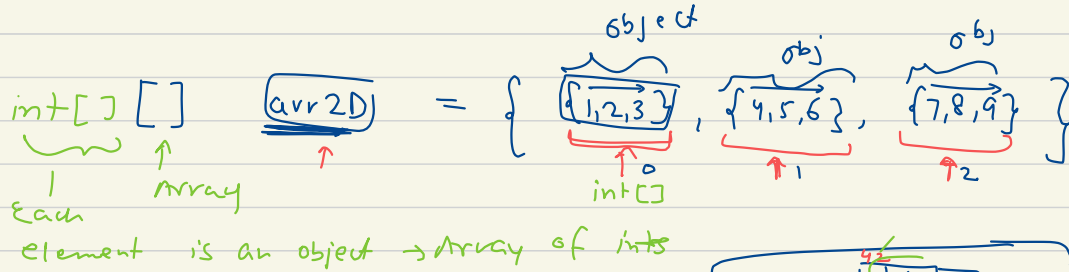 object obj obj
int[] [] arr2D = { {1,2,3}, {4,5,6}, {7,8,9} }
0 1 2
Array int[]
Each
element is an object → Array of ints
42